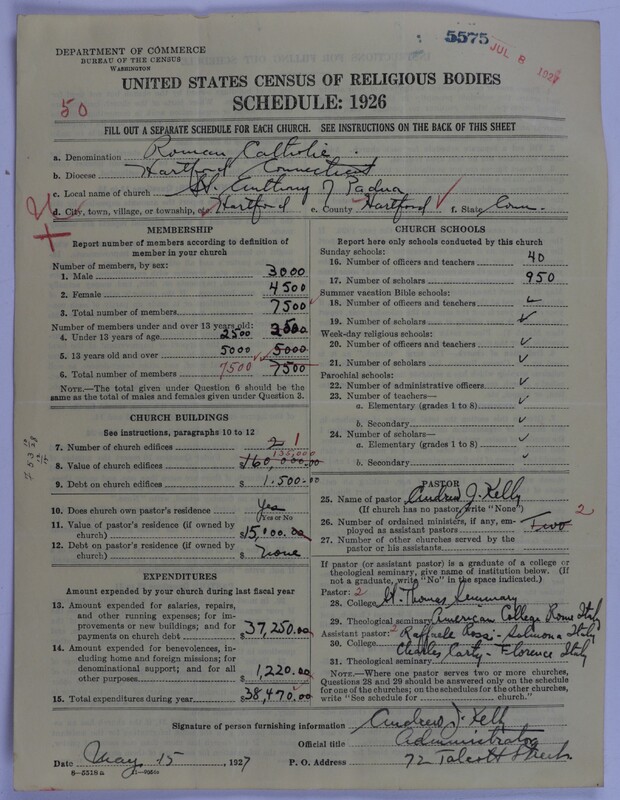 5575
JUL 8 1927
DEPARTMENT OF COMMERCE
BUREAU OF THE CENSUS
WASHINGTON
UNITED STATES CENSUS OF RELIGIOUS BODIES
SCHEDULE: 1926
50
FILL OUT A SEPARATE SCHEDULE FOR EACH CHURCH. SEE INSTRUCTIONS ON THE BACK OF THIS SHEET
a. Denomination Roman Catholic
b. Diocese Hartford Connecticut
c. Local name of church St. Anthony of Padua
d. City, town, village, or township, etc. Hartford e. County Hartford f. State Conn.
MEMBERSHIP
Report number of members according to definition of member in your church
Number of members, by sex:
1. Male 3000
2. Female 4500
3. Total number of members 7500
Number of members under and over 13 years old:
4. Under 13 years of age 2500
5. 13 years old and over 5000 5000
6. Total number of members 7500 7500
NOTE.—The total given under Question 6 should be the same as the total of males and females given under Question 3.
CHURCH BUILDINGS
See instructions, paragraphs 10 to 12
7. Number of church edifices 2 1
135,000
8. Value of church edifices $160,000.00
9. Debt on church edifices $1.500.00
10. Does church own pastor's residence? Yes
Yes or No
11. Value of pastor's residence (if owned by church) $15,000.00
12. Debt on pastor's residence (if owned by church) $ None
EXPENDITURES
Amount expended by your church during last fiscal year
13. Amount expended for salaries, repairs, and other running expenses; for improvements or new buildings; and for payments on church debt $37,250.00
14. Amount expended for benevolences, including home and foreign missions; for denominational support; and for all other purposes $1,220.00
15. Total expenditures during year $38,470.00
CHURCH SCHOOLS
Report here only schools conducted by this church
Sunday schools:
16. Number of officers and teachers 40
17. Number of scholars 950
Summer vacation Bible schools:
18. Number of officers and teachers
19. Number of scholars
Week-day religious schools:
20. Number of officers and teachers
21. Number of scholars
Parochial schools:
22. Number of administrative officers
23. Number of teachers—
a. Elementary (grades 1 to 8)
b. Secondary
24. Number of scholars—
a. Elementary (grades 1 to 8)
b. Secondary
PASTOR
25. Name of pastor Andrew J. Kelly
(If church has no pastor, write "None")
26. Number of ordained ministers, if any, employed as assistant pastors Two 2
27. Number of other churches served by the pastor or his assistants
If pastor (or assistant pastor) is a graduate of a college or theological seminary, give name of institution below. (If not a graduate, write "No" in the space indicated.)
Pastor: 2
28. College St. Thomas Seminary
29. Theological seminary American College Rome Italy
Assistant pastor: 2 Raffaele Rossi - Sulmona Italy
30. College Charles Carty - Florence Italy
31. Theological seminary
NOTE.—Where one pastor serves two or more churches, Questions 28 and 29 should be answered only on the schedule for one of the churches; on the schedules for the other churches, write "See schedule for church."
Signature of person furnishing information Andrew J. Kelly
Official title Administrator
Date May 15, 1927 P. O. Address 72 Talcott Street
8—5518a